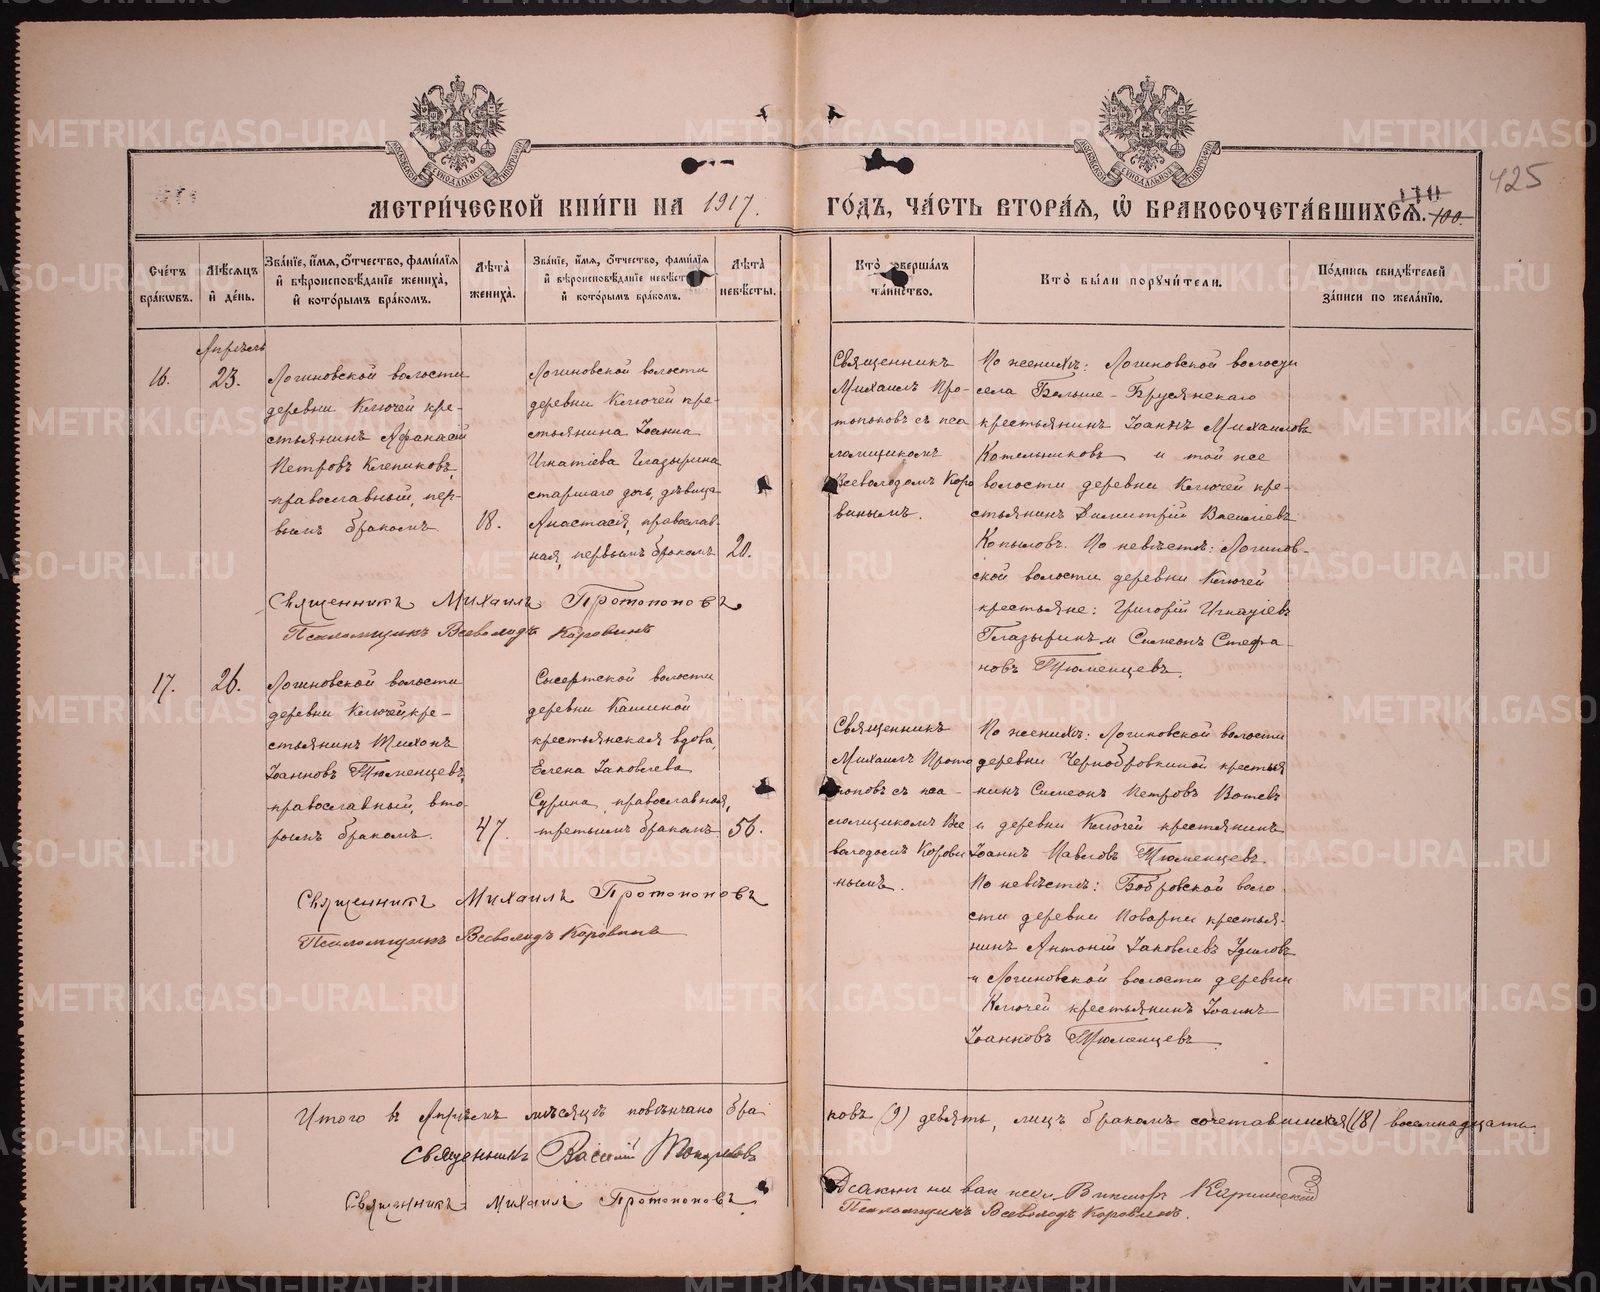 425
МЕТРИ́ЧЕСКОЙ КНИ́ГИ НА 1917. ГО́ДЪ, ЧА́СТЬ ВТОРА́Я, Ѡ БРАКОСОЧЕТА́ВШИХСЯ. 100.
Сче́тъ бра́ковъ.
Мѣ́сяцъ и҆ де́нь.
Зва́нїе, и҆́мя, ѻ҆́тчество, фами́лїя и҆ вѣроисповѣ́данїе жениха̀, и҆ кото́рымъ бра́комъ.
Лѣ́та жениха̀.
Зва́нїе, и҆́мя, ѻ҆́тчество, фами́лїя и҆ вѣроисповѣ́данїе невѣ́сты, и҆ кото́рымъ бра́комъ.
Лѣ́та невѣ́сты.
Кто̀ соверша́лъ та́инство.
Кто̀ бы́ли порꙋчи́тели.
По́дпись свидѣ́телей за́писи по жела́нїю.
Апрѣль
16.
23.
Логиновской волости
деревни Ключей кре-
стьянинъ Афанасій
Петровъ Клепиковъ,
православный, пер-
вымъ бракомъ
18.
Логиновской волости
деревни Ключей кре-
стьянина Іоанна
Игнатіева Глазырина
старшаго дочь, дѣвица
Анастасія, православ-
ная, первымъ бракомъ
20.
Священникъ
Михаилъ Про-
топоповъ съ пса
ломщикомъ
Всеволодомъ Коро
винымъ.
По женихѣ: Логиновской волости
села Больше-Брусянскаго
крестьянинъ Іоаннъ Михаиловъ
Котельниковъ и той же
волости деревни Ключей кре-
стьянинъ Димитрій Василіевъ
Копыловъ. По невѣстѣ: Логинов-
ской волости деревни Ключей
крестьяне: Григорій Игнатіевъ
Глазыринъ и Симеонъ Стефа
новъ Тюменцевъ.
Священникъ Михаилъ Протопоповъ
Псаломщикъ Всеволодъ Коровинъ
17.
26.
Логиновской волости
деревни Ключей, кре-
стьянинъ Тихонъ
Іоанновъ Тюменцевъ,
православный, вто-
рымъ бракомъ.
47.
Сысертской волости
деревни Кашиной
крестьянская вдова,
Елена Іаковлева
Сурина, православная,
третьимъ бракомъ
56.
Священникъ
Михаилъ Прото
поповъ съ пса-
ломщикомъ Все
володомъ Корови
нымъ.
По женихѣ: Логиновской волости
деревни Чернобровкиной крестья
нинъ Симеонъ Петровъ Вотевъ
и деревни Ключей крестьянинъ
Іоаннъ Павловъ Тюменцевъ.
По невѣстѣ: Бобровской воло
сти деревни Поварни крестья-
нинъ Антоній Іаковлевъ
и Логиновской волости деревни
Ключей крестьянинъ Іоаннъ
Іоанновъ Тюменцевъ.
Священникъ Михаилъ Протопоповъ
Псаломщикъ Всеволодъ Коровинъ
Итого въ Апрѣлѣ мѣсяцѣ повѣнчано бра
ковъ (9) девять, лицъ бракомъ сочетавшихся (18) восемнадцать.
Священникъ Василій
Священникъ Михаилъ Протопоповъ
Діаконъ на вак. псал. Викторъ
Псаломщикъ Всеволодъ Коровинъ.
METRIKI.GASO-URAL.RU